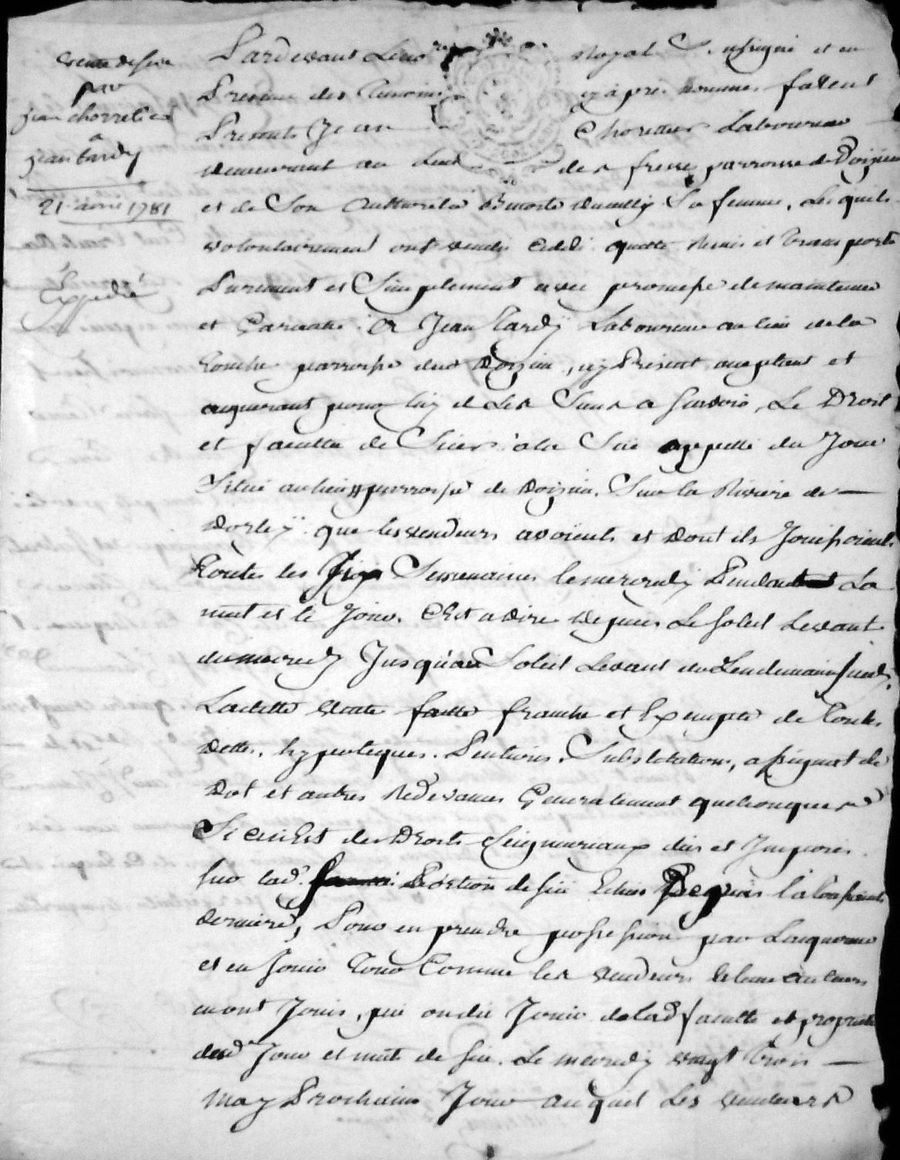 vente de sie
par
jean chorretier
a
jean tardy
21 avril 1781
Expedié
Pardevant Le no.re Royal Soussigné et en
Presence des Temoins cy après nommés furent
Presents Jean Laboureur
demeurant au Lieu de parroisse de Doizieu
et de Son authorité Sa femme, Lesquels
volontairement ont vendu cédé quitté remis et transporté
Purement et Simplement avec promesse de maintenue
et Garantie. A Jean Tardy Laboureur au lieu de la
parroisse dud Doizieu, icy Present acceptant et
acquerant pour luy et Les Siens a savoir, Le Droit
et faculté de Sier a la Sie appellé du Jour
Situé au lieu et parroisse de Doizieu. Sur la Riviere de
Dorley. que les vendeurs avoient et dont ils Jouissoient
toutes les Semmaines le mercredy Pendant La
nuit et le Jour. C'est a dire depuis Le Soleil Levant
du mercredy Jusqu'au Soleil Levant du Lendemain Jeudy.
Laditte vente faitte franche et Exempte de touttes
Dettes, hypoteques. Pentions, Substitutions, assignat de
Dot et autres Redevances Generalement quelconques
Si ce n'Est des Droits Seigneuriaux dus et Imposés
sur lad. Portion de sie Echus Depuis la Toussaint
derniere, Pour en prendre possession par L'acquereur
et en Jouir Tout Comme les vendeurs et leurs auteurs
en ont Jouis, pu ou du Jouir de lad faculté et proprieté
dud Jour et nuit de Sie. Le mercredy vingt trois
may Prochain Jour auquel Les vendeurs